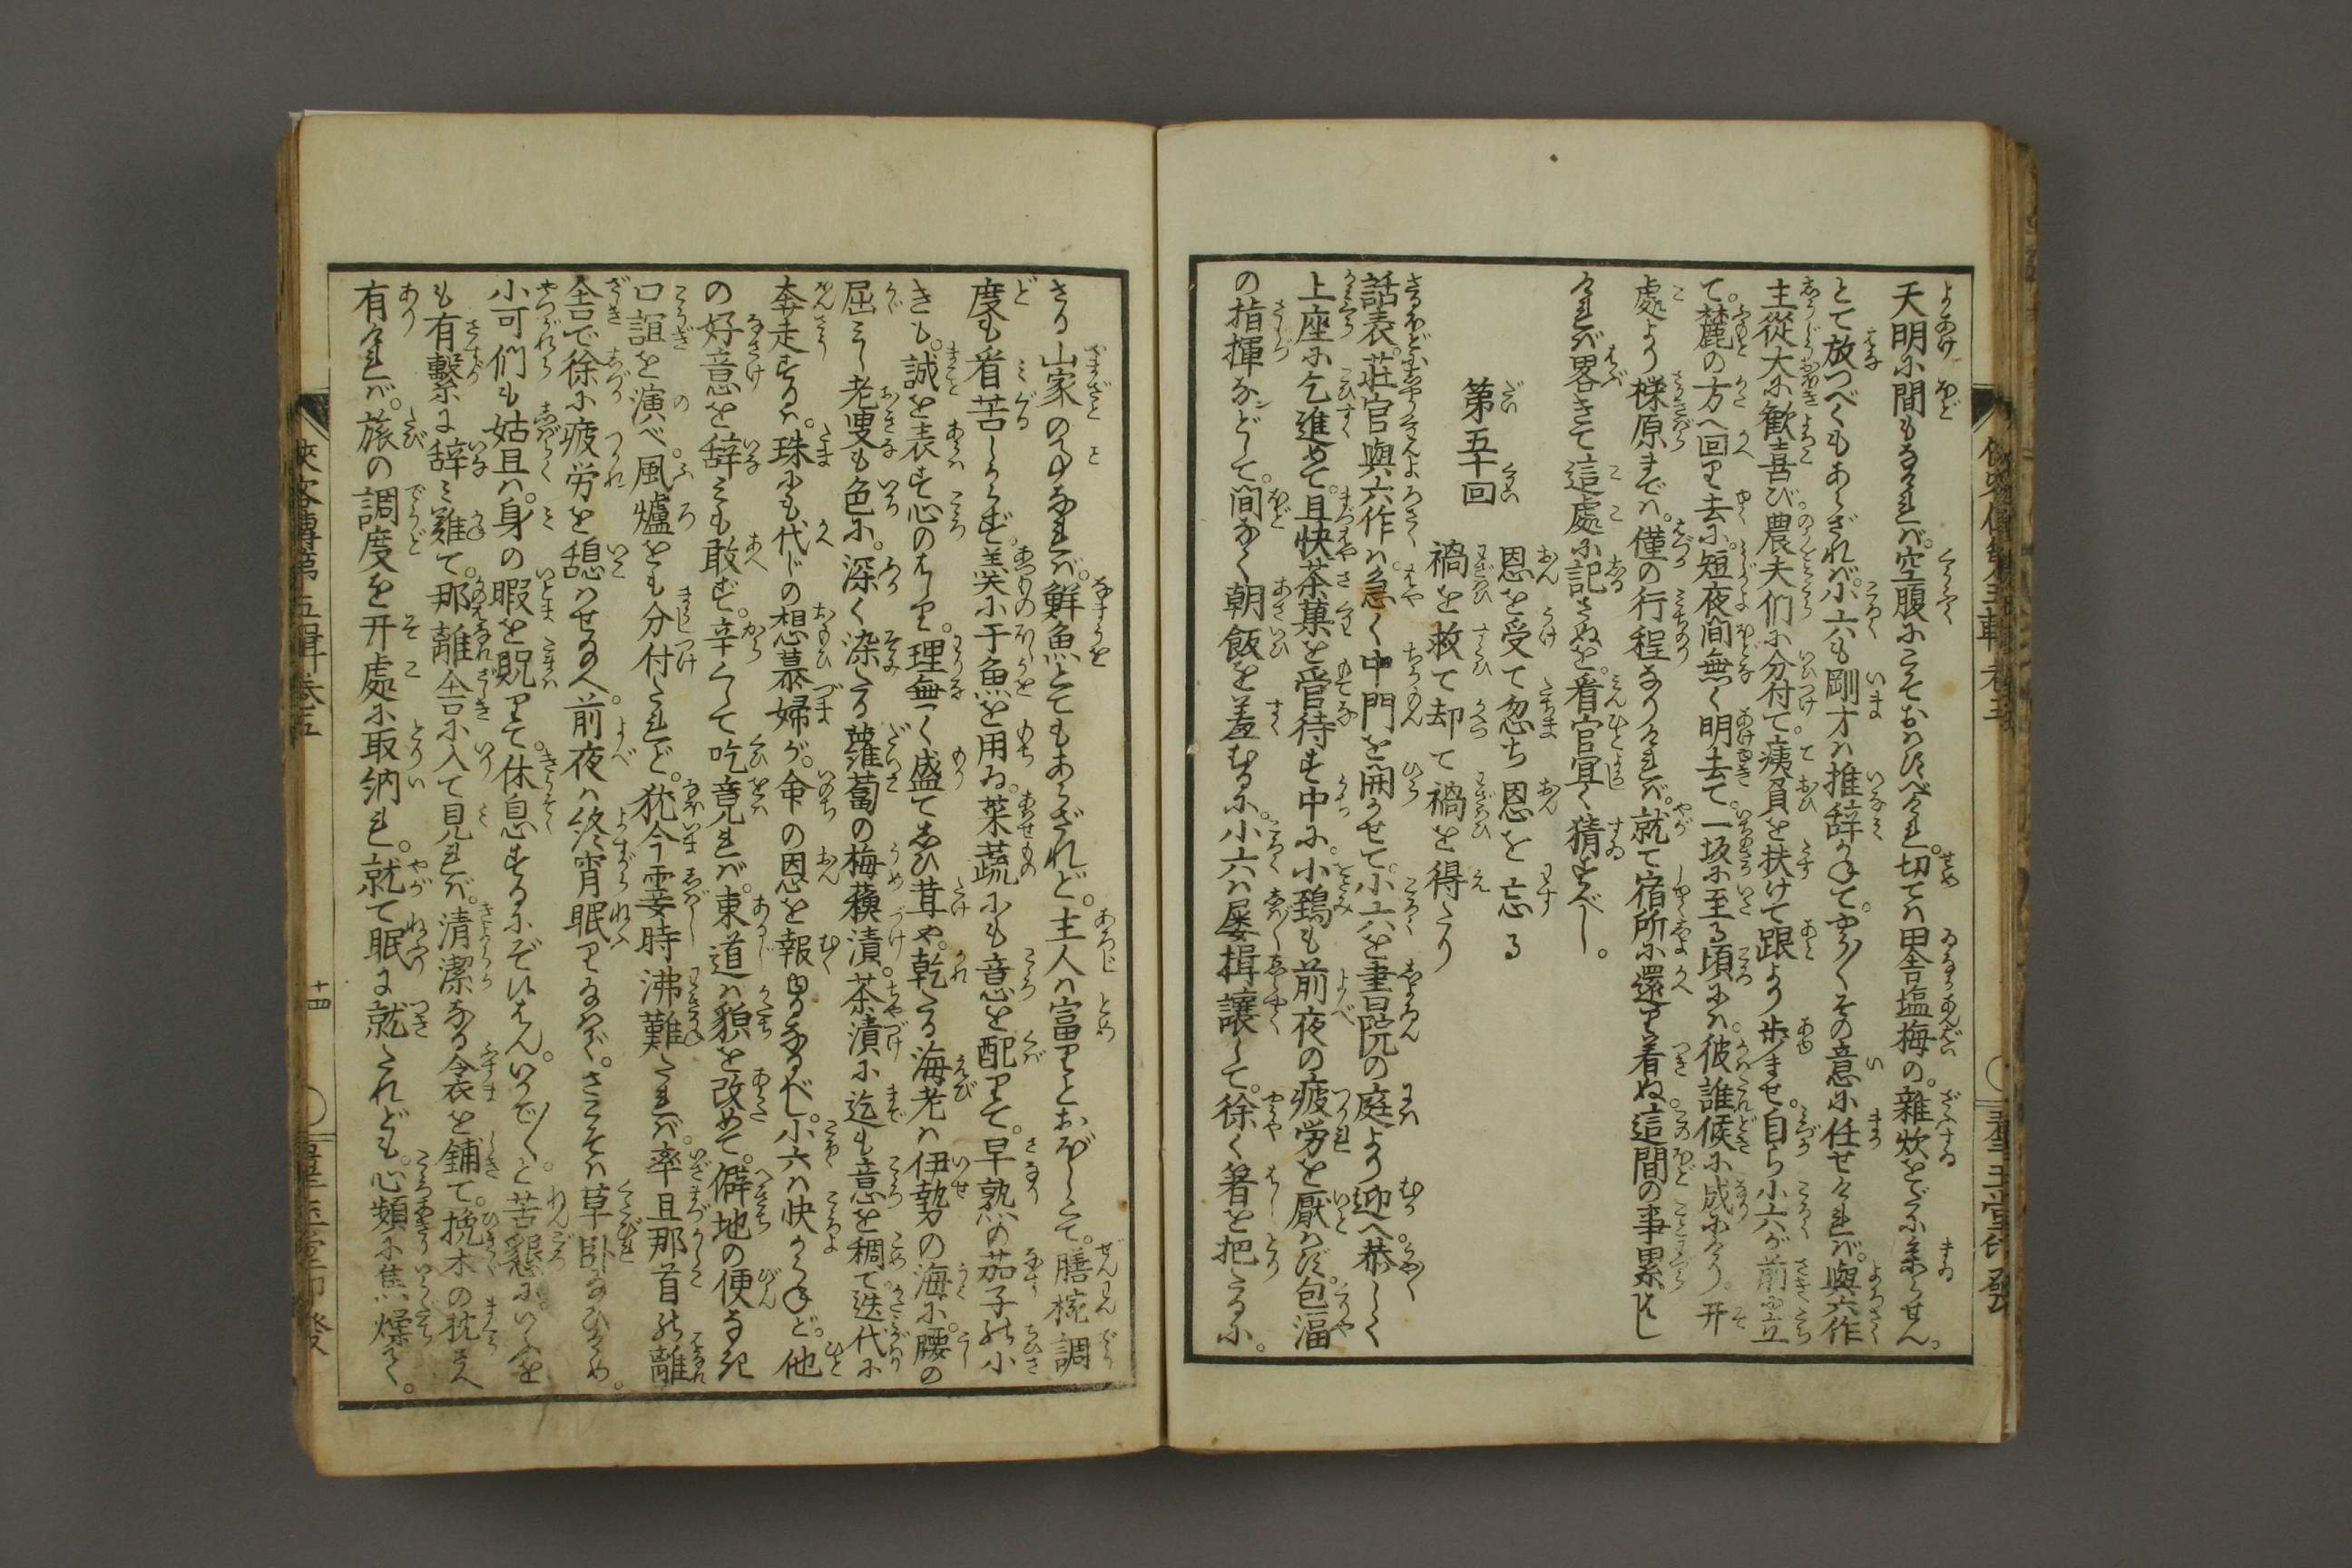 天明に間もなければ。空腹にこそおはすべけれ。切ては田舎塩梅の。雑炊をだに参らせん。
とて放つべくもあらざれば。小六も剛才は推辞かねて。云云その意に任せければ。與六作
主從大に歓喜び。農夫們に分付て。痍負を扶けて跟より歩ませ。自ら小六が前に立
て。麓の方へ回り去に。短夜間無く明去て。一坂に至る頃には。彼誰候に成にけり。开
處より檪原までは。僅の行程なりければ。就て宿所に還り着ぬ。這間の事累じし
ければ畧きて這處に記さぬを。看官宜く猜すべし。
第五十回
恩を受て忽ち恩を忘る
禍を救て却て禍を得たり
話表。莊官與六作は。急く中門を開かせて。小六を書院の庭より迎へ。恭しく
上座に乞進めて。且快茶菓を管待す中に。小鵐も前夜の疲労を厭はず。包湢
の指揮などして。間なく朝飯を羞むるに。小六は屡揖譲して。徐く箸を把たるに。
さる山家の事なれば。鮮魚とてもあらざれど。主人は富りとおぼしくて。膳椀調
度も看苦しからず。羹に干魚を用ゐ。菜蔬にも意を配りて。早熟の茄子の小
きも。誠を表す心のはしり。理無く盛てしひ茸や。乾たる海老は伊勢の海に。腰の
屈みし老叟も色に。深く染たる蘿蔔の梅蘓漬。茶漬に迄も意を稠て。迭代に
奔走するは。珠にも代じの想慕婦が。命の恩を報ゆるなるべし。小六は快からねど。他
の好意を辞みも敢ず。辛くして吃竟れば。東道は貌を改めて。僻地の便なき
口誼を演べ。風爐をも分付たれど。犹今霎時沸難たれば。率且那首の離
舎で徐に疲労を憩はせ給へ。前夜は終宵眠り給はず。さこそは草臥給ひけめ。
小可們も姑且は。身の暇を貺りて。休息するにぞ候はん。いかでいかでと。苦懇にいふを
も有繋に辞み難て。那離舎に入て見れば。清潔なる衾を鋪て。挽木の枕さへ
有ければ。旅の調度を开處に取納れ。就て眠に就たれども。心頻に焦燥て。
侠客傳第五輯巻五
十四
群玉堂印發